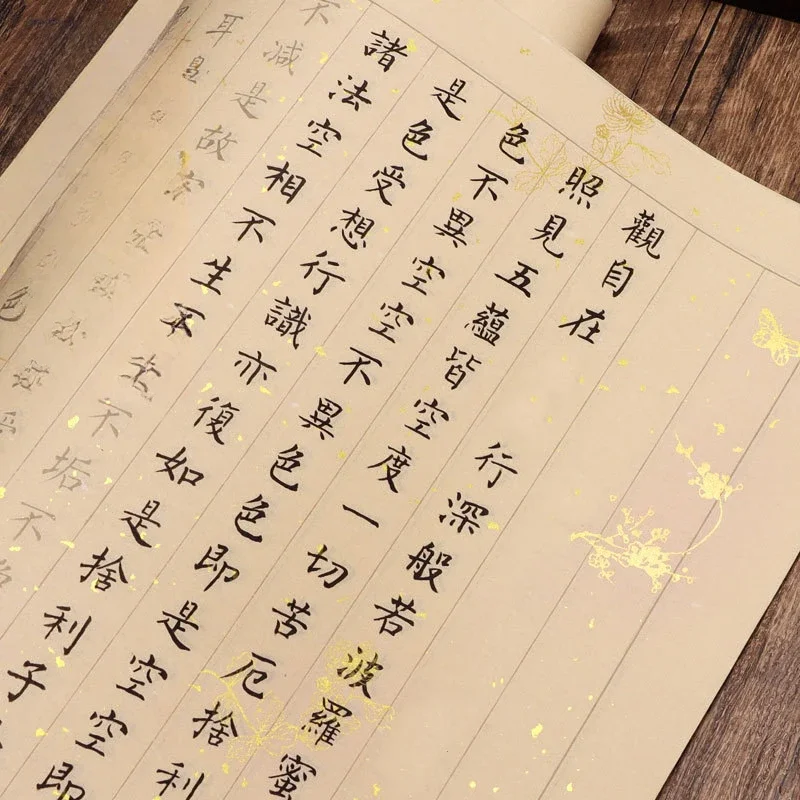 觀自在行深般若波羅蜜
照見五蘊皆空度一切苦厄捨利
色不異空空不異色色即是空空即
是色受想行識亦復如是捨利子
諸法空相不生不不垢不
不減是故
耳
色